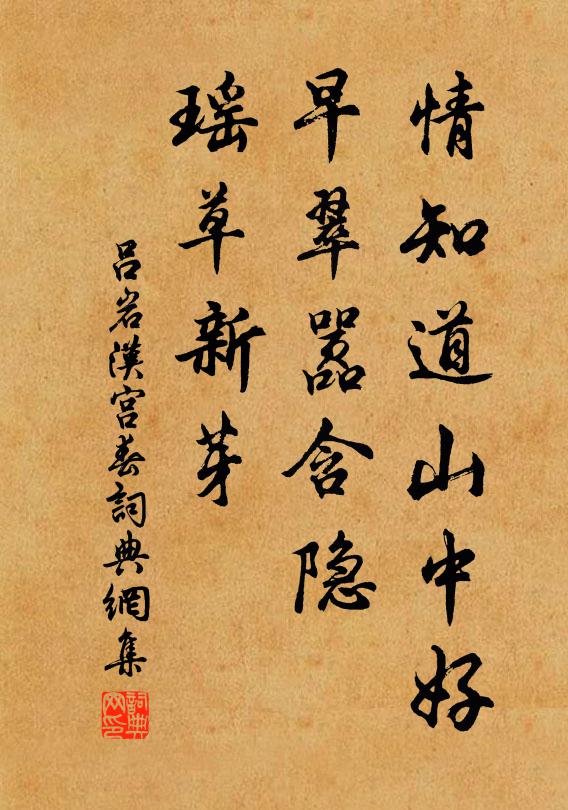 情知道山中好
早翠嚣含隐
瑶草新芽
吕岩漢宫春詞典網集
詞典网印